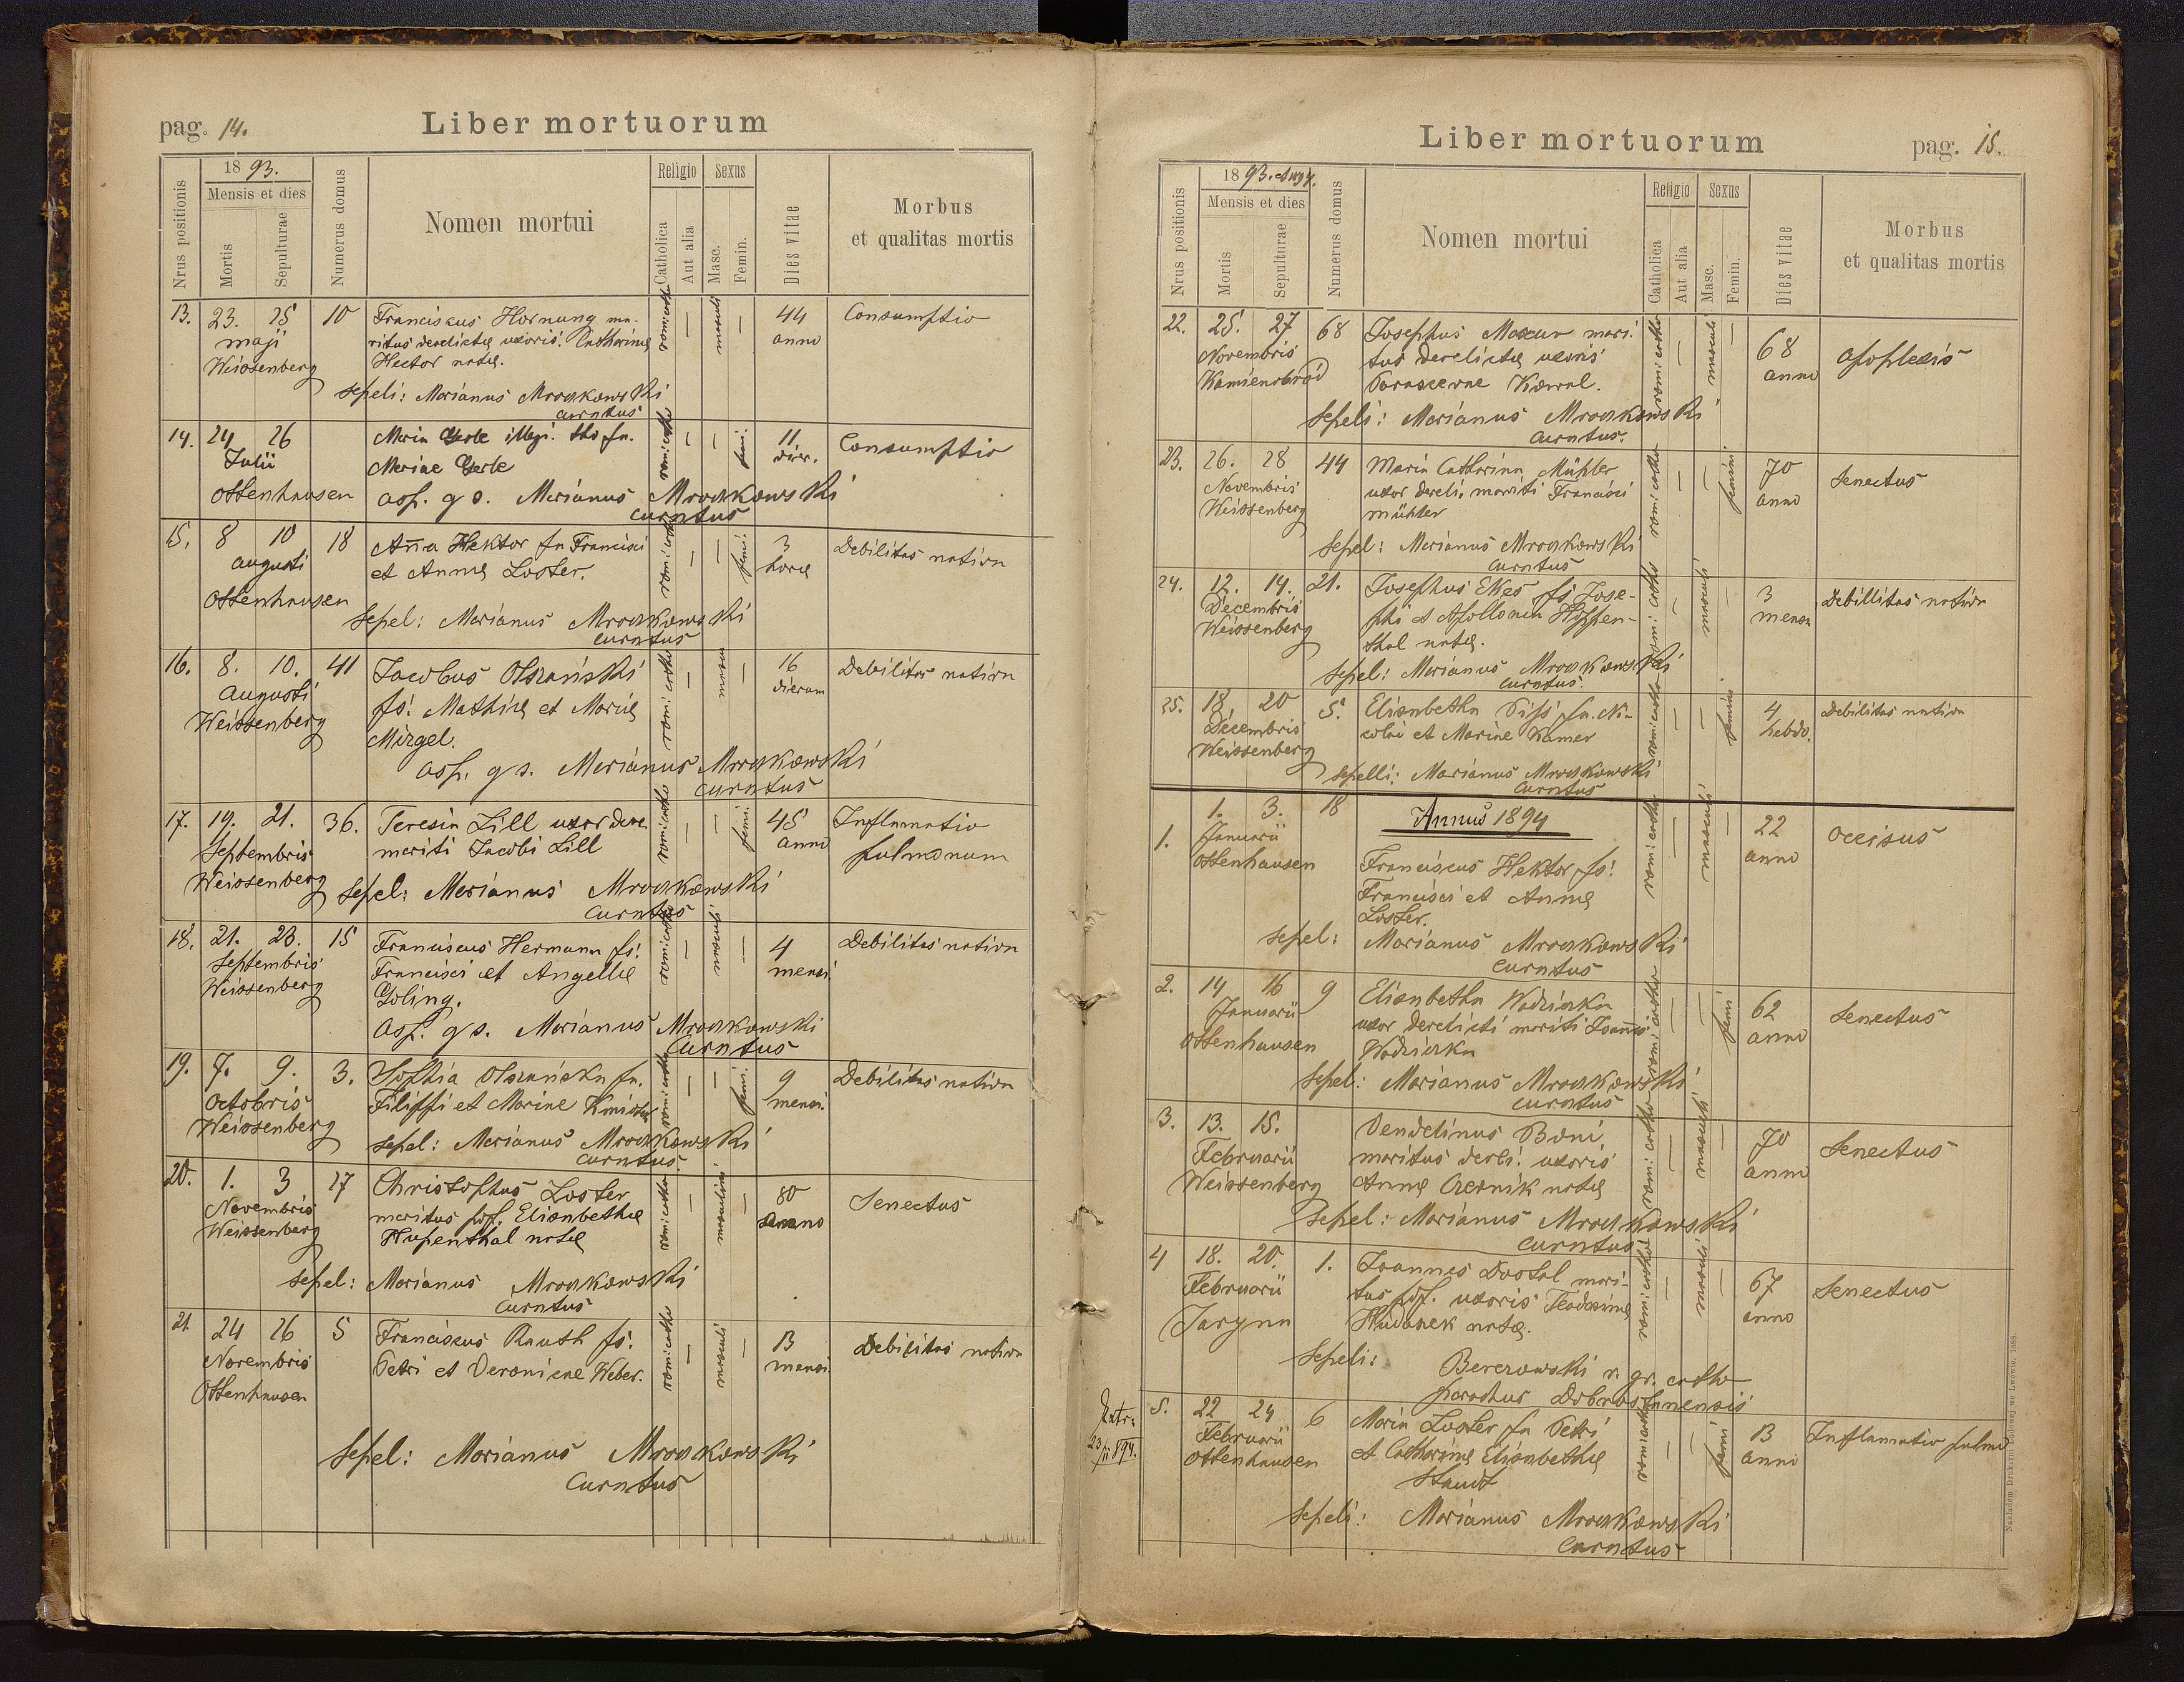 pag. 14.
Liber mortuorum
Nrus positionis
1893.
Mensis et dies
Mortis
Sepulturae
Numerus domus
Nomen mortui
Religio
Catholica
Aut alia
Sexus
Masc.
Femin.
Dies vitae
Morbus
et qualitas mortis
13. 23. 25 10 Franciskus Hornung ma- rom: catho — masculi — 44 Consumptio
maji ritus derelictae uxoris. Catharinae anno
Weissenberg Hector natae.
sepeli: Marianus Mroczkowski
curatus
14. 24 26 Maria Gerle illegi. tho fa. rom: catho — — femi. 11 Consumptio
Julii Mariae Gerle dier.
Ottenhausen asp. g s. Marianus Mroczkowski
curatus
15. 8 10 18 Anna Hektor fa Francisci rom: catho — — femi. 3 Debilitas nativa
augusti et Annae Loster. horae
Ottenhausen
Sepel: Marianus Mroczkowski
curatus
16. 8. 10. 41 Jacobus Olszański rom: catho — mascu — 16 Debilitas nativa
Augusti fs! Mathiae et Mariae dierum
Weissenberg Mirgel.
asp. g s. Marianus Mroczkowski
curatus
17. 19. 21. 36. Teresia Lill uxor dere rom: catho — — femi. 45 Inflamatio
Septembris mariti Jacobi Lill anno pulmonum
Weissenberg Sepel: Marianus Mroczkowski
curatus
18. 21. 23. 15 Franciscus Hermann fs! rom: catho — masculi — 4 Debilitas nativa
Septembris Francisci et Angellae mensi.
Weissenberg Goling.
asp. g s. Marianus Mroczkowski
Curatus
19. 7. 9. 3. Sophia Olszańska fa. rom: catho — — femi. 9 Debilitas nativa
Octobris Filippi et Mariae mensi.
Weissenberg sepel: Marianus Mroczkowski
curatus
20. 1. 3 27 Christophus Loster rom: catho — masculini — 80 Senectus
Novembris maritus Elisabethae anno
Weissenberg Hupenthal natae
sepel: Marianus Mroczkowski
Curatus
21. 24 26 5 Franciscus Rauth fs! rom: catho — masculi — 13 Debilitas nativa
Novembris Petri et Veronicae Weber. mensi.
Ottenhausen
Sepel: Marianus Mroczkowski
Curatus
Liber mortuorum
pag. 15.
Nrus positionis
1893. 1894.
Mensis et dies
Mortis
Sepulturae
Numerus domus
Nomen mortui
Religio
Catholica
Aut alia
Sexus
Masc.
Femin.
Dies vitae
Morbus
et qualitas mortis
22. 25. 27 68 Josephus Mazur mari- rom: catho — masculi — 68 apoplexis
Novembris tus derelictae uxoris anno
Kamienobród Parascevae Kowal.
Sepeli: Marianus Mroczkowski
Curatus.
23. 26. 28 44 Maria Catharina Mühler rom: catho — — femini 70 Senectus
Novembris uxor dereli. mariti Francisci anno
Weissenberg mühler
Sepel: Marianus Mroczkowski
Curatus
24. 12. 14. 21. Josephus Ekes fs Jose- rom: catho — masculi — 3 Debillitas nativa
Decembris phi et Apollonia Hoppen- mensi
Weissenberg thal natae.
Sepel: Marianus Mroczkowski
curatus.
25. 18 20 5. Elisabetha fa. Ni- rom: catho — — femini 4 Debilitas nativa
Decembris colai et Mariae Kamer hebdo.
Weissenberg
sepelli: Marianus Mroczkowski
Curatus
Annus 1894
1. 1. 3. 18 rom: catho — masculi — 22 occisus
Januarii anno
Ottenhausen Franciscus Hektor fs!
Francisci et Annae
Loster.
sepel: Marianus Mroczkowski
curatus
2. 14 16 9 Elisabetha Wodziczka rom: catho — — femi 62 Senectus
Januarii uxor derelicti mariti Joannis anno
Ottenhausen Wodziczka
Sepel: Marianus Mroczkowski
curatus
3. 13. 15. Vendelinus Boni rom: catho — masculi — 70 Senectus
Februarii maritus dereli. uxoris anno
Weissenberg Annae Czernik natae
Sepel: Marianus Mroczkowski
curatus
4 18. 20. 1. Joannes Dostal mari- rom: catho — masculi — 67 Senectus
Februarii tus uxoris Teodozinae anno
Jaryna Hudanek natae.
Sepeli: Berezowski r. gr. catho
parochus Dobrostanensis
5. 22 24 6 Maria Loster fa Petri rom: catho — — femi 13 Inflamatio pulmo
Februarii et Catharinae Elisabethae anno
Ottenhausen Staudt
Extr.
23/III 894.
Sepeli: Marianus Mroczkowski
Curatus
Nakładem Drukarni Ludowej we Lwowie. 1888.